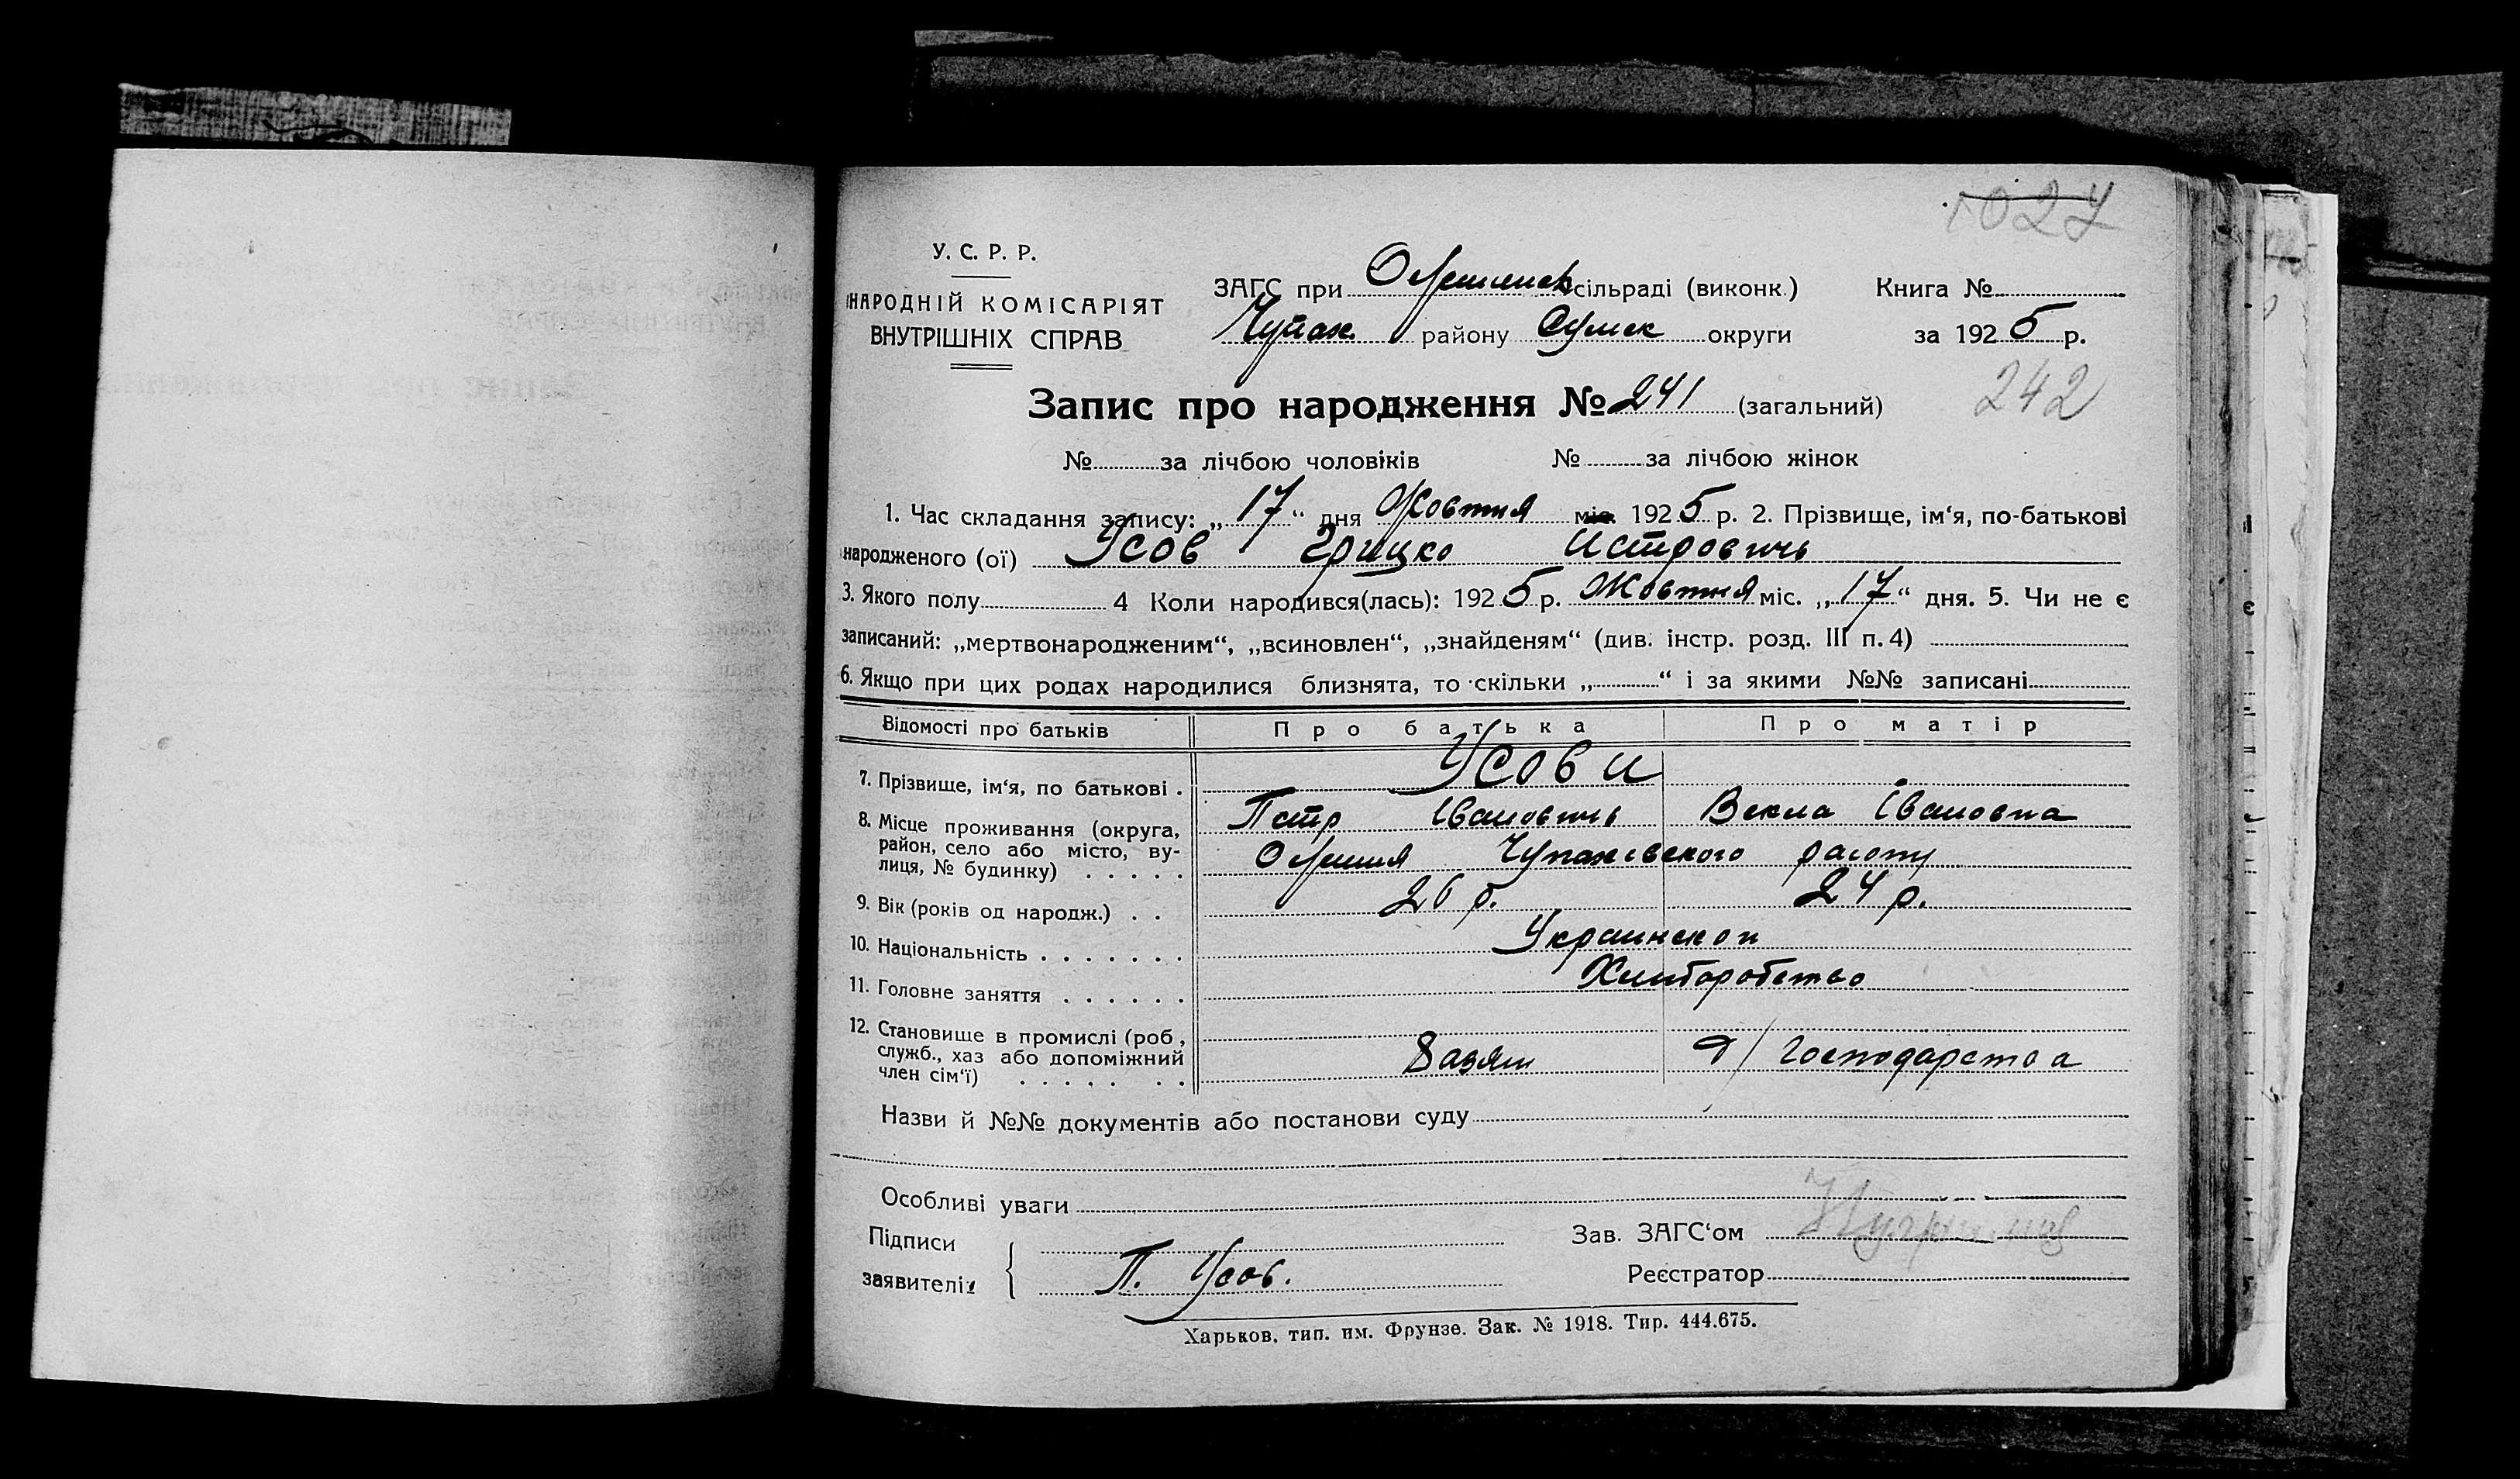 1024
У. С. Р. Р.
НАРОДНІЙ КОМІСАРІЯТ
ВНУТРІШНІХ СПРАВ
ЗАГС при Олешенск сільраді (виконк.) Книга №
Чупах. району Сумск округи за 1925 р.
Запис про народження № 241 (загальний) 242
№ за лічбою чоловіків № за лічбою жінок
1. Час складання запису: „17“ дня Жовтня міс. 1925 р. 2. Прізвище, ім‘я, по-батькові
народженого (ої) Усов Грицко Петровичь
3. Якого полу 4 Коли народився(лась): 1925 р. Жовтня міс. „17“ дня. 5. Чи не є
записаний: „мертвонародженим“, „всиновлен“, „знайденям“ (див. інстр. розд. III п. 4)
6. Якщо при цих родах народилися близнята, то скільки „ “ і за якими №№ записані
Відомості про батьків Про батька Про матір
7. Прізвище, ім‘я, по батькові . Усови
Петр Івановичь Векла Івановна
8. Місце проживання (округа, район, село або місто, вулиця, № будинку) . . . . . Олешня Чупахівского раіону
9. Вік (років од народж.) . . 26 р. 24 р.
10. Національність . . . . . . . Украинскои
11. Головне заняття . . . . . . Хлиборобство
12. Становище в промислі (роб,
служб., хаз або допоміжний
член сім‘ї) . . . . . . . Хазяин Господарства
Назви й №№ документів або постанови суду
Особливі уваги
Підписи Зав. ЗАГС‘ом
заявителів П. Усов. Реєстратор
Харьков, тип. им. Фрунзе. Зак. № 1918. Тир. 444.675.